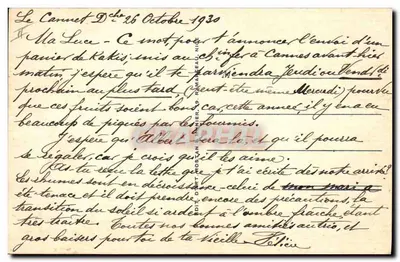 Le Cannet Dche 26 Octobre 1930
Ma Luce. Ce mot, pour t'annoncer l'envoi d'un
panier de Kakis, mis au ch. in fer à Cannes avant hier
matin, j'espère qu'il te parviendra Jeudi ou Vend. di
prochain au plus tard, (peut-être même Mercredi) pourvu
que ces fruits soient bons, car, cette année, il y en a eu
beaucoup de piqués par les fourmis.
J'espère qu' qu'il pourra
se régaler, car je crois qu'il les aime.
As-tu reçu la lettre que je t'ai écrite dès notre arrivée?
Les rhumes sont en décroissance celui de mon mari a
été tenace et il doit prendre, encore des précautions, la
transition du soleil si ardent à l'ombre, fraîche, étant
très traître. Toutes nos bonnes amitiés au trio, et
gros baisers pour toi de ta vieille